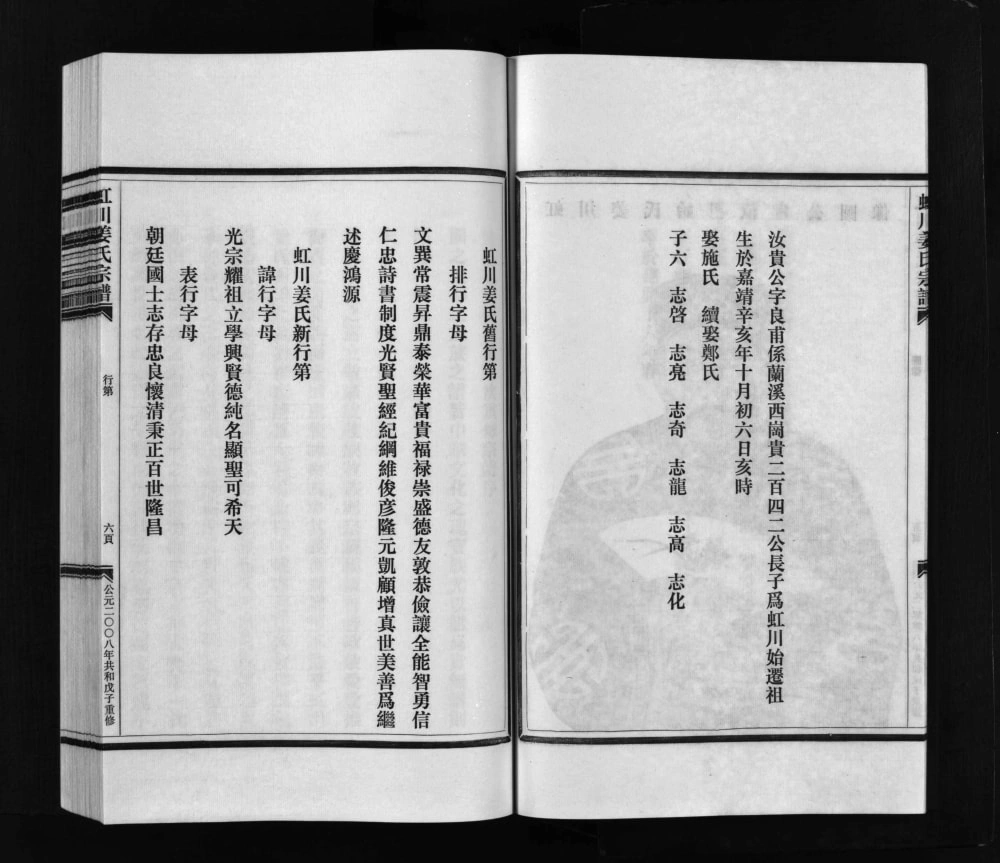 虹川姜氏宗譜
汝貴公字良甫係蘭溪西崗貴二百四二公長子爲虹川始遷祖
生於嘉靖辛亥年十月初六日亥時
娶施氏 續娶鄭氏
子六 志啓 志亮 志奇 志龍 志高 志化
虹川姜氏舊行第
排行字母
文巽常震昇鼎泰榮華富貴福禄崇盛德友敦恭儉讓全能智勇信
仁忠詩書制度光賢聖經紀綱維俊彦隆元凱顧增真世美善爲繼
述慶鴻源
虹川姜氏新行第
諱行字母
光宗耀祖立學興賢德純名顯聖可希天
表行字母
朝廷國士志存忠良懷清秉正百世隆昌
虹川姜氏宗譜
行第
六頁
公元二〇〇八年共和戊子重修